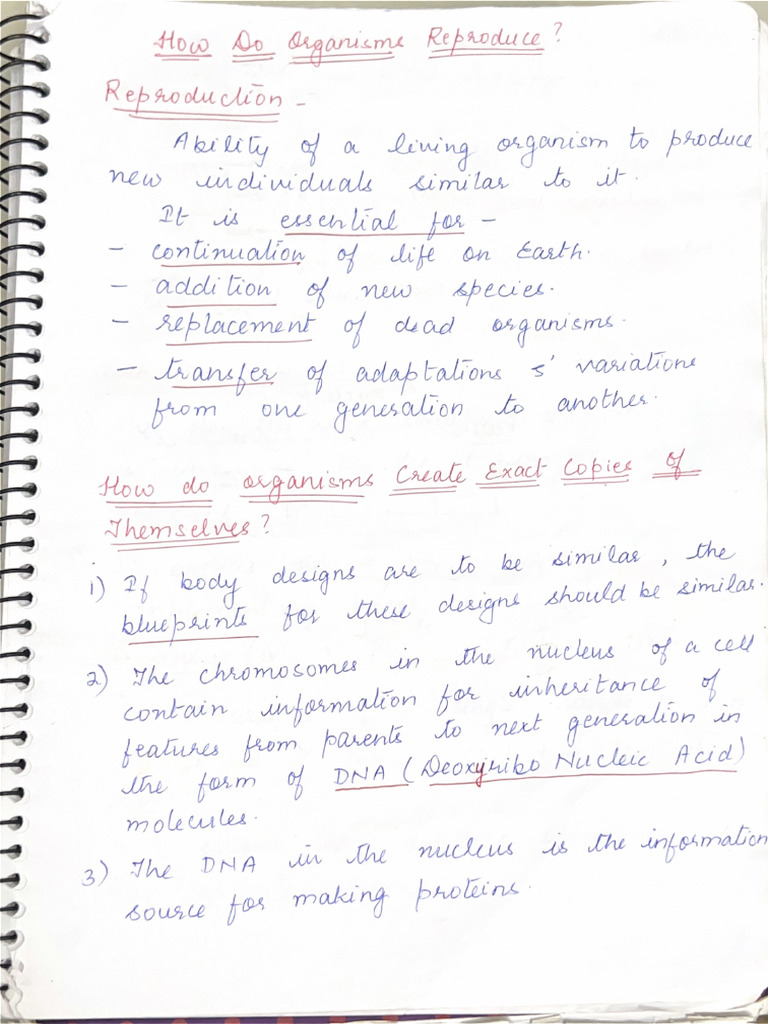 How Do Organisms Reproduce?
Reproduction -
Ability of a living organism to produce
new individuals similar to it.
It is essential for -
- continuation of life on Earth.
- addition of new species.
- replacement of dead organisms.
- transfer of adaptations & variations
from one generation to another.
How do organisms Create Exact Copies of
Themselves?
1) If body designs are to be similar, the
blueprints for these designs should be similar.
2) The chromosomes in the nucleus of a cell
contain information for inheritance of
features from parents to next generation in
the form of DNA (Deoxyribo Nucleic Acid)
molecules.
3) The DNA in the nucleus is the information
source for making proteins.